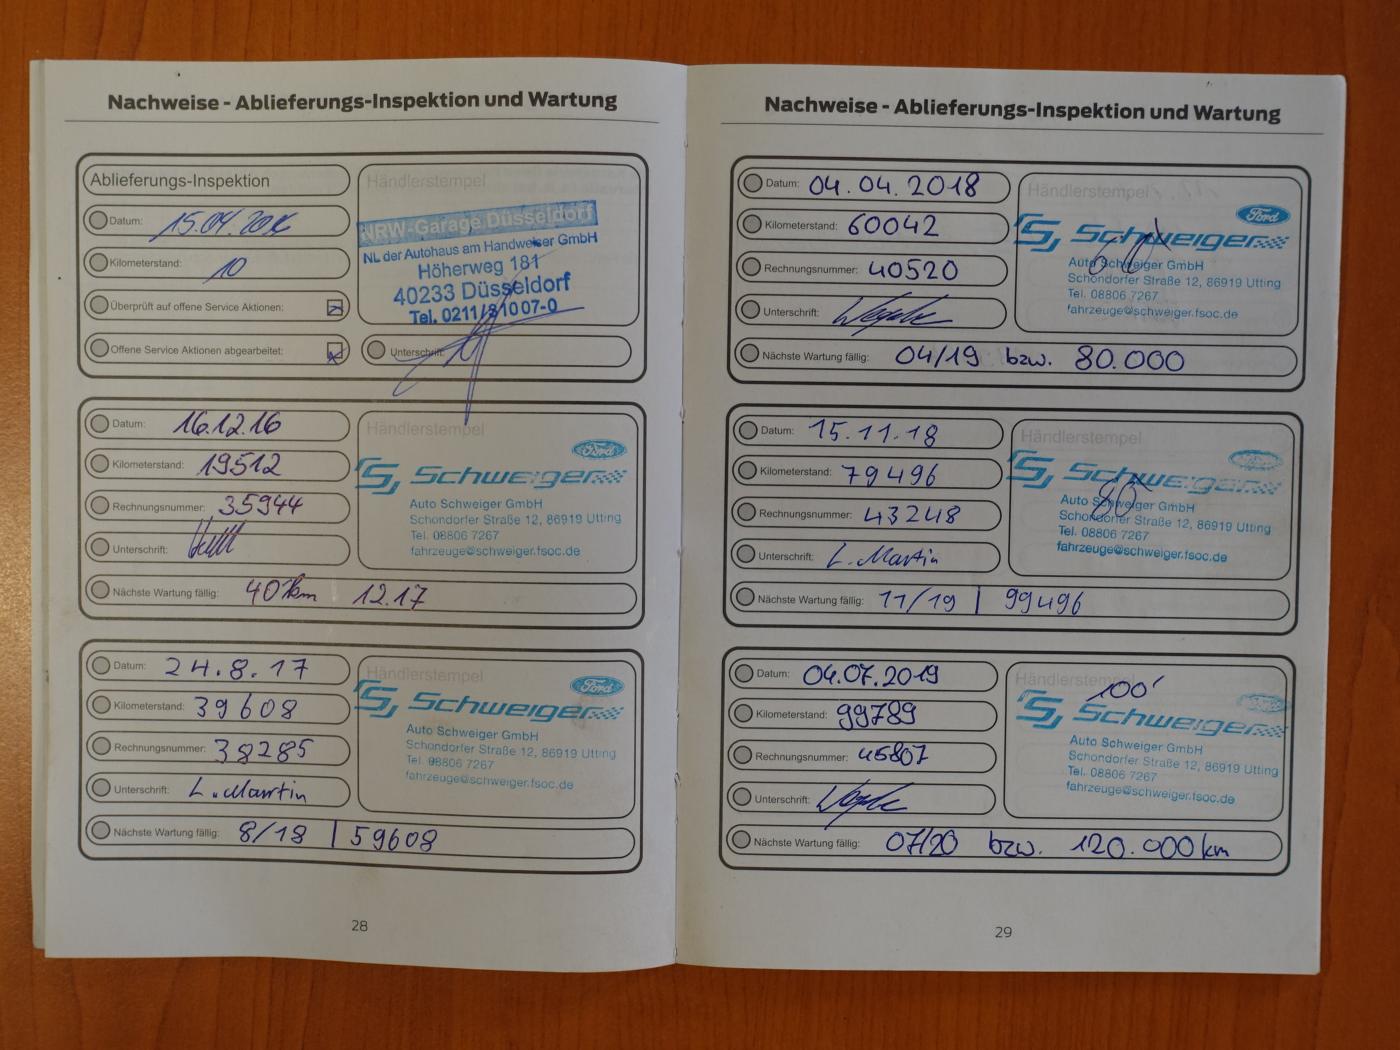 Nachweise - Ablieferungs-Inspektion und Wartung
Ablieferungs-Inspektion
Datum: 15.04.2016
Kilometerstand: 10
Überprüft auf offene Service Aktionen:
Offene Service Aktionen abgearbeitet:
Händlerstempel
NRW-Garage Düsseldorf
NL der Autohaus am Handweiser GmbH
Höherweg 181
40233 Düsseldorf
Tel. 0211/81007-0
Unterschrift:
Datum: 16.12.16
Kilometerstand: 19512
Rechnungsnummer: 35944
Unterschrift:
Händlerstempel
Ford
Schweiger
Auto Schweiger GmbH
Schondorfer Straße 12, 86919 Utting
Tel. 08806 7267
fahrzeuge@schweiger.fsoc.de
Nächste Wartung fällig: 40Tkm 12.17
Datum: 24.8.17
Kilometerstand: 39608
Rechnungsnummer: 38285
Unterschrift: L. Martin
Händlerstempel
Ford
Schweiger
Auto Schweiger GmbH
Schondorfer Straße 12, 86919 Utting
Tel. 08806 7267
fahrzeuge@schweiger.fsoc.de
Nächste Wartung fällig: 8/18 | 59608
28
Nachweise - Ablieferungs-Inspektion und Wartung
Datum: 04.04.2018
Kilometerstand: 60042
Rechnungsnummer: 40520
Unterschrift:
Händlerstempel
Ford
Schweiger
Auto Schweiger GmbH
Schondorfer Straße 12, 86919 Utting
Tel. 08806 7267
fahrzeuge@schweiger.fsoc.de
Nächste Wartung fällig: 04/19 bzw. 80.000
Datum: 15.11.18
Kilometerstand: 79496
Rechnungsnummer: 43248
Unterschrift: L. Martin
Händlerstempel
Ford
Schweiger
80'
Auto Schweiger GmbH
Schondorfer Straße 12, 86919 Utting
Tel. 08806 7267
fahrzeuge@schweiger.fsoc.de
Nächste Wartung fällig: 11/19 | 99496
Datum: 04.07.2019
Kilometerstand: 99789
Rechnungsnummer: 45807
Unterschrift:
Händlerstempel
100'
Schweiger
Auto Schweiger GmbH
Schondorfer Straße 12, 86919 Utting
Tel. 08806 7267
fahrzeuge@schweiger.fsoc.de
Nächste Wartung fällig: 07/20 bzw. 120.000km
29